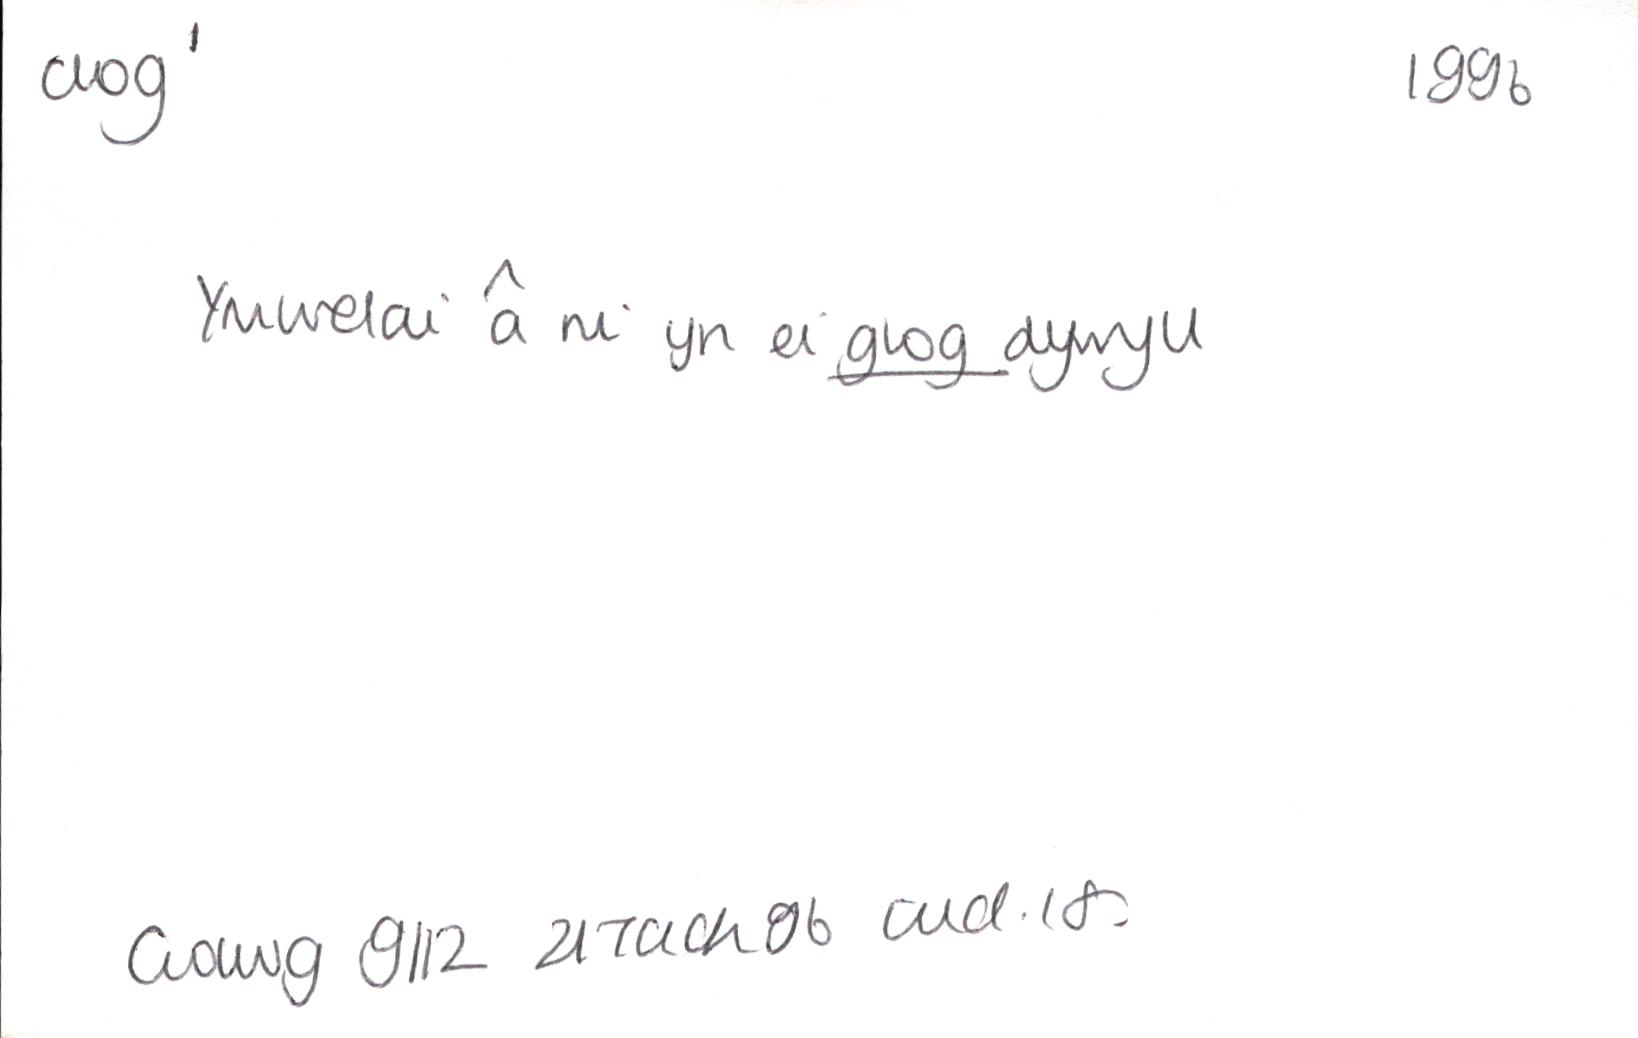 clog¹ 1996
Ymwelai â ni yn ei glog dywyll
Golwg 9/12 21 Tach 96 tud. 18